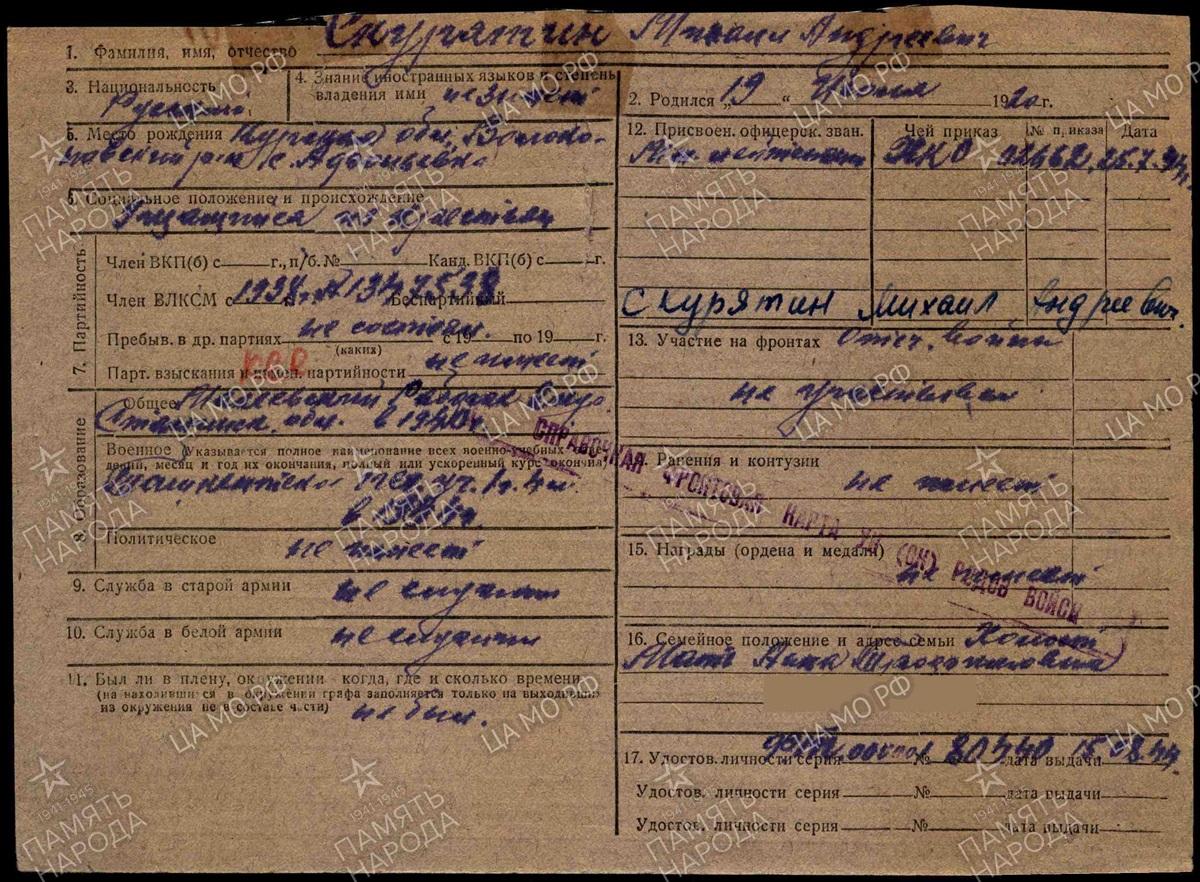 1. Фамилия, имя, отчество Скурятин Михаил Андреевич
3. Национальность
Русский
4. Знание иностранных языков и степень
владения ими не знает
5. Место рождения Курская обл. Волоко-
новский р-н с.
6. Социальное положение и происхождение
Учащийся из крестьян
7. Партийность
Член ВКП(б) с г., п/б. № Канд. ВКП(б) с г.
Член ВЛКСМ с 1938 Беспартийный
Пребыв. в др. партиях не состоял. с 19 по 19 г.
(каких)
Парт. взыскания и партийности не имеет
8. Образование
Общее Рабфак
обл. в 1940 г.
Военное (Указывается полное наименование всех военно-учебных
дений, месяц и год их окончания, полный или ускоренный курс окончил)
Политическое не имеет
9. Служба в старой армии не служил
10. Служба в белой армии не служил
11. Был ли в плену, окружении когда, где и сколько времени
(на находившихся в окружении графа заполняется только на выходящих
из окружения не в составе части) не был.
2. Родился „19“ Июня 1920 г.
12. Присвоен. офицерск. зван. Чей приказ № приказа Дата
Мл. лейтенант НКО 02462
Скурятин Михаил Андреевич.
13. Участие на фронтах Отеч. войны
не участвовал
14. Ранения и контузии
не имеет
СПРАВОЧНАЯ ФРОНТОВАЯ КАРТА УК (ОК) РОДОВ ВОЙСК
15. Награды (ордена и медали)
не имеет
16. Семейное положение и адрес семьи Холост
Мать Анна Прокопиевна
17. Удостов. личности серия № 80440 дата выдачи 15.08.44.
Удостов. личности серия № дата выдачи
Удостов. личности серия № дата выдачи
ПАМЯТЬ
НАРОДА
1941-1945
ЦА МО РФ